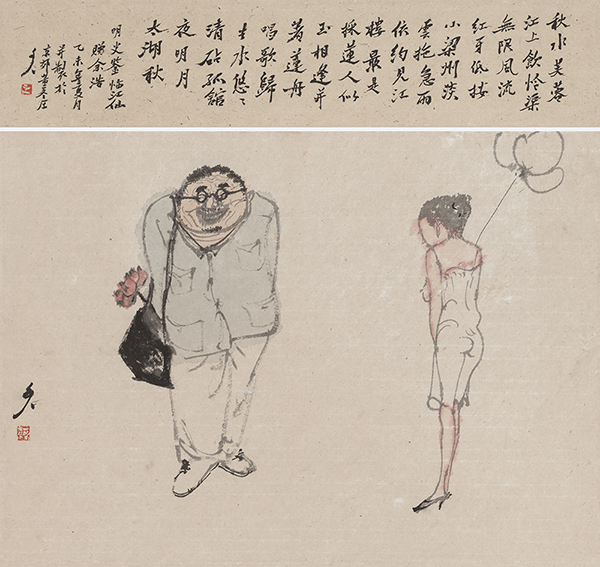 秋水芙蓉
江上飲怜渠
無限風流
红牙低按
小梁州淡
雲拖急雨
依約見江
樓 最是
採蓮人似
玉相逢并
著蓮舟
唱歌歸
去水悠〻
清砧孤館
夜明月
太湖秋
明史鑒臨江仙
贈余浩
乙未年夏月
并製於
京郊